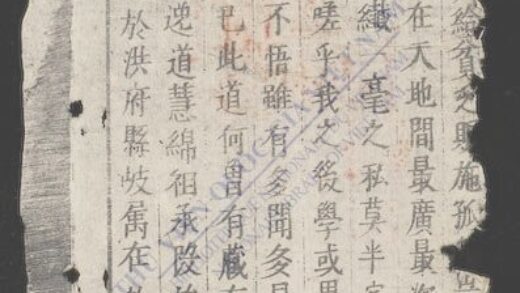 給貧乏賑施孤
在天地間最廣最
纖毫之私莫半
嗟乎我之後學或
不悟雖有多聞多
已此道何曽有藏
道慧綿祖承
於洪府縣岐在
THƯ VIỆN QUỐC GIA VIỆT NAM
NATIONAL LIBRARY OF VIETNAM